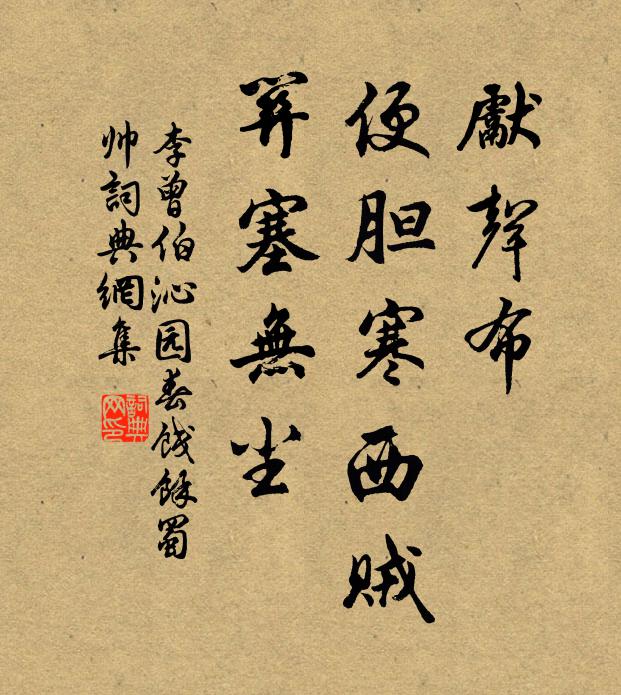 獻聲布
便胆寒西賊
塞無尘
李曾伯沁园春餞餘蜀
帅詞典網集
詞典网印